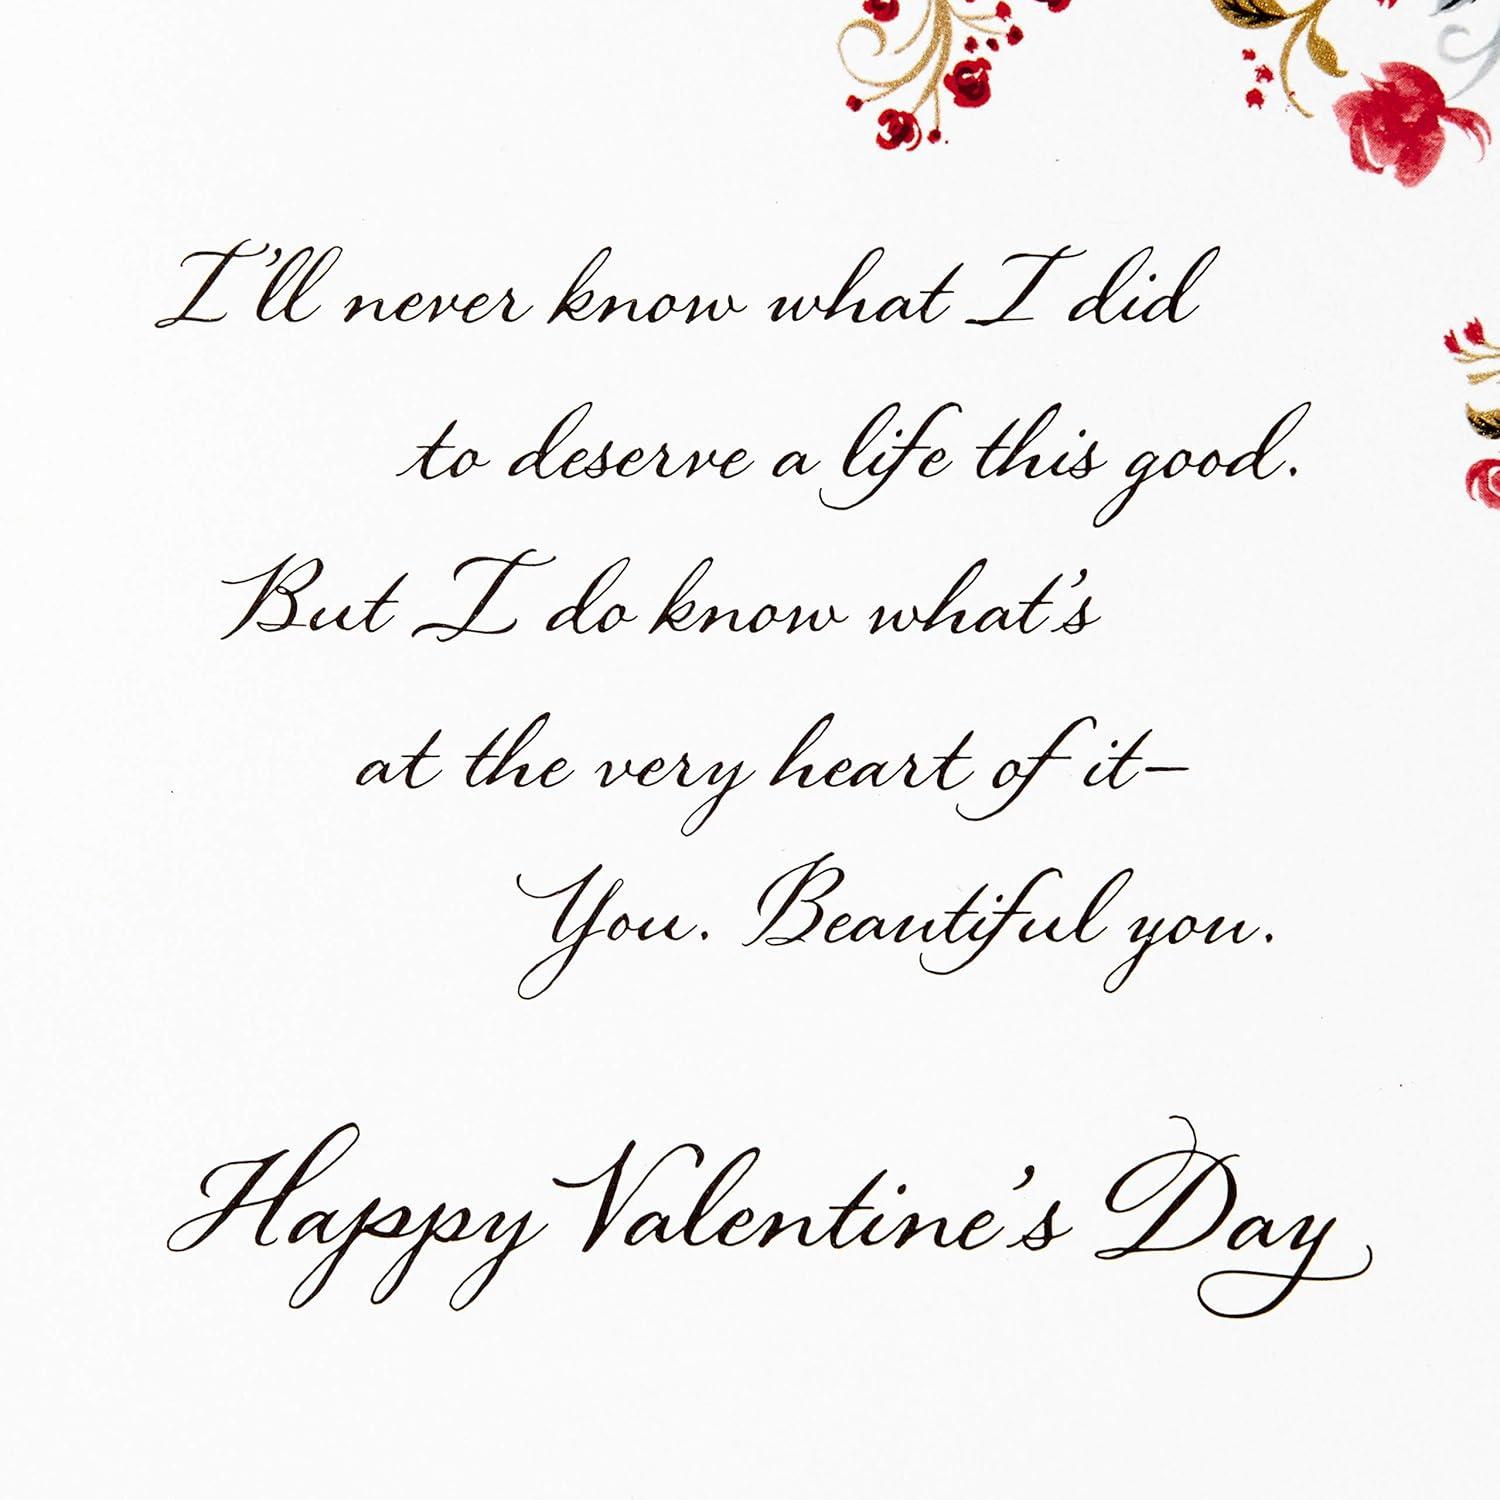 I'll never know what I did
to deserve a life this good.
But I do know what's
at the very heart of it—
You. Beautiful you.
Happy Valentine's Day